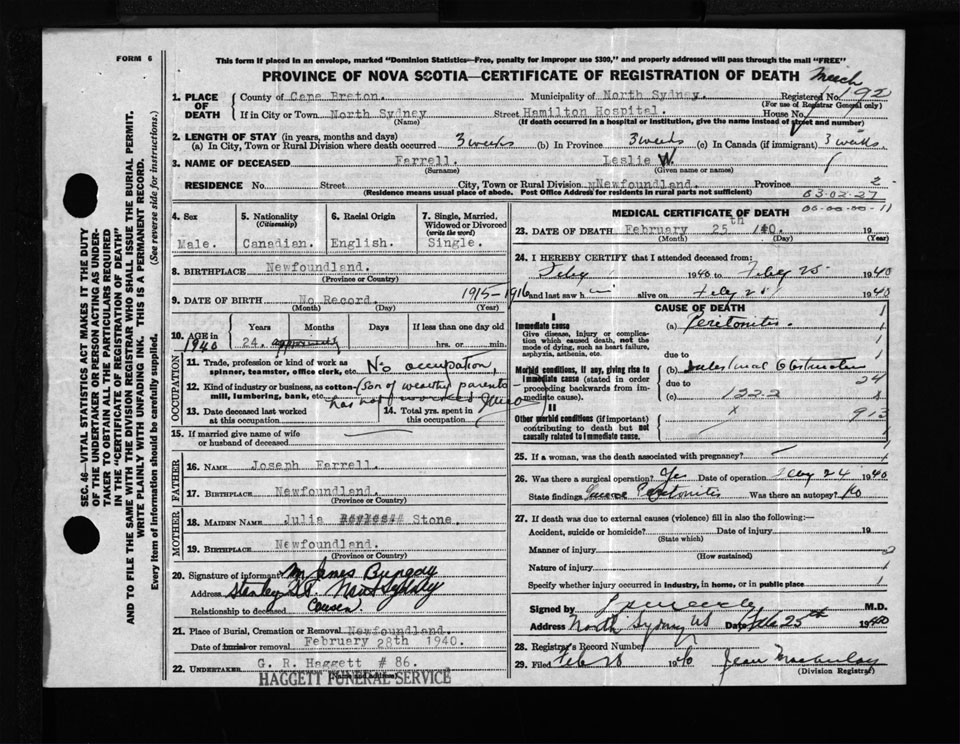 FORM 6
This form if placed in an envelope, marked "Dominion Statistics—Free, penalty for improper use $300," and properly addressed will pass through the mail "FREE"
PROVINCE OF NOVA SCOTIA—CERTIFICATE OF REGISTRATION OF DEATH
1. PLACE OF DEATH County of Cape Breton. Municipality of North Sydney. Registered No. 192
(For use of Registrar General only)
If in City or Town North Sydney Street Hamilton Hospital. House No.
(Name) (If death occurred in a hospital or institution, give the name instead of street and number)
2. LENGTH OF STAY (in years, months and days)
(a) In City, Town or Rural Division where death occurred 3 weeks (b) In Province 3 weeks (c) In Canada (if immigrant) 3 weeks
3. NAME OF DECEASED Farrell. Leslie W.
(Surname) (Given name or names)
RESIDENCE No. Street City, Town or Rural Division Newfoundland. Province
(Residence means usual place of abode. Post Office Address for residents in rural parts not sufficient)
03-02-27
00-00-00-11
4. Sex Male.
5. Nationality (Citizenship) Canadian.
6. Racial Origin English.
7. Single, Married, Widowed or Divorced (write the word) Single.
8. BIRTHPLACE Newfoundland.
(Province or Country)
9. DATE OF BIRTH No Record. 1915-1916
(Month) (Day) (Year)
10. AGE in 1940 Years Months Days If less than one day old
24. approximately hrs. or min.
OCCUPATION
11. Trade, profession or kind of work as spinner, teamster, office clerk, etc. No occupation,
12. Kind of industry or business, as cotton-mill, lumbering, bank, etc. (son of wealthy parents
has not worked
13. Date deceased last worked at this occupation
14. Total yrs. spent in this occupation
15. If married give name of wife or husband of deceased
FATHER
16. NAME Joseph Farrell.
17. BIRTHPLACE Newfoundland.
(Province or Country)
MOTHER
18. MAIDEN NAME Julia Stone.
19. BIRTHPLACE Newfoundland.
(Province or Country)
20. Signature of informant
Address Stanley St. North Sydney
Relationship to deceased Cousin
21. Place of Burial, Cremation or Removal Newfoundland.
Date of burial or removal February 28th 1940.
22. UNDERTAKER G. R. Haggett # 86.
(Name and address)
HAGGETT FUNERAL SERVICE
MEDICAL CERTIFICATE OF DEATH
23. DATE OF DEATH February 25th 140. 19
(Month) (Day) (Year)
24. I HEREBY CERTIFY that I attended deceased from:
Feby 1940 to Feby 25 1940
and last saw h im alive on Feby 25 1940
CAUSE OF DEATH
I
Immediate cause
Give disease, injury or complication which caused death, not the mode of dying, such as heart failure, asphyxia, asthenia, etc.
(a) Peritonitis.
due to
Morbid conditions, if any, giving rise to immediate cause (stated in order proceeding backwards from immediate cause).
(b) Intestinal Obstruction
due to 24
(c) 122.2
II
Other morbid conditions (if important) contributing to death but not causally related to immediate cause.
913
25. If a woman, was the death associated with pregnancy?
26. Was there a surgical operation? Yes Date of operation Feby 24 1940
State findings Peritonitis Was there an autopsy? No
27. If death was due to external causes (violence) fill in also the following:—
Accident, suicide or homicide? Date of injury 19
(State which)
Manner of injury
(How sustained)
Nature of injury
Specify whether injury occurred in industry, in home, or in public place
Signed by M.D.
Address North Sydney NS Date Feb 25th 1940
28. Registrar's Record Number
29. Filed Feb 28 1940 Jean
(Division Registrar)
SEC. 46—VITAL STATISTICS ACT MAKES IT THE DUTY
OF THE UNDERTAKER OR PERSON ACTING AS UNDER-
TAKER TO OBTAIN ALL THE PARTICULARS REQUIRED
IN THE "CERTIFICATE OF REGISTRATION OF DEATH"
AND TO FILE THE SAME WITH THE DIVISION REGISTRAR WHO SHALL ISSUE THE BURIAL PERMIT.
WRITE PLAINLY WITH UNFADING INK. THIS IS A PERMANENT RECORD.
Every item of information should be carefully supplied. (See reverse side for instructions.)